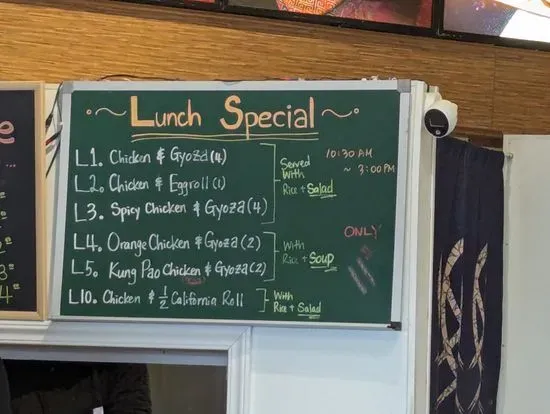 ~ Lunch Special ~
L1. Chicken & Gyoza (4)
L2. Chicken & Eggroll (1)
L3. Spicy Chicken & Gyoza (4)
Served
With
Rice + Salad
10:30 AM
~ 3:00 PM
ONLY
L4. Orange Chicken & Gyoza (2)
L5. Kung Pao Chicken & Gyoza (2)
With
Rice + Soup
L10. Chicken & 1/2 California Roll
With
Rice + Salad